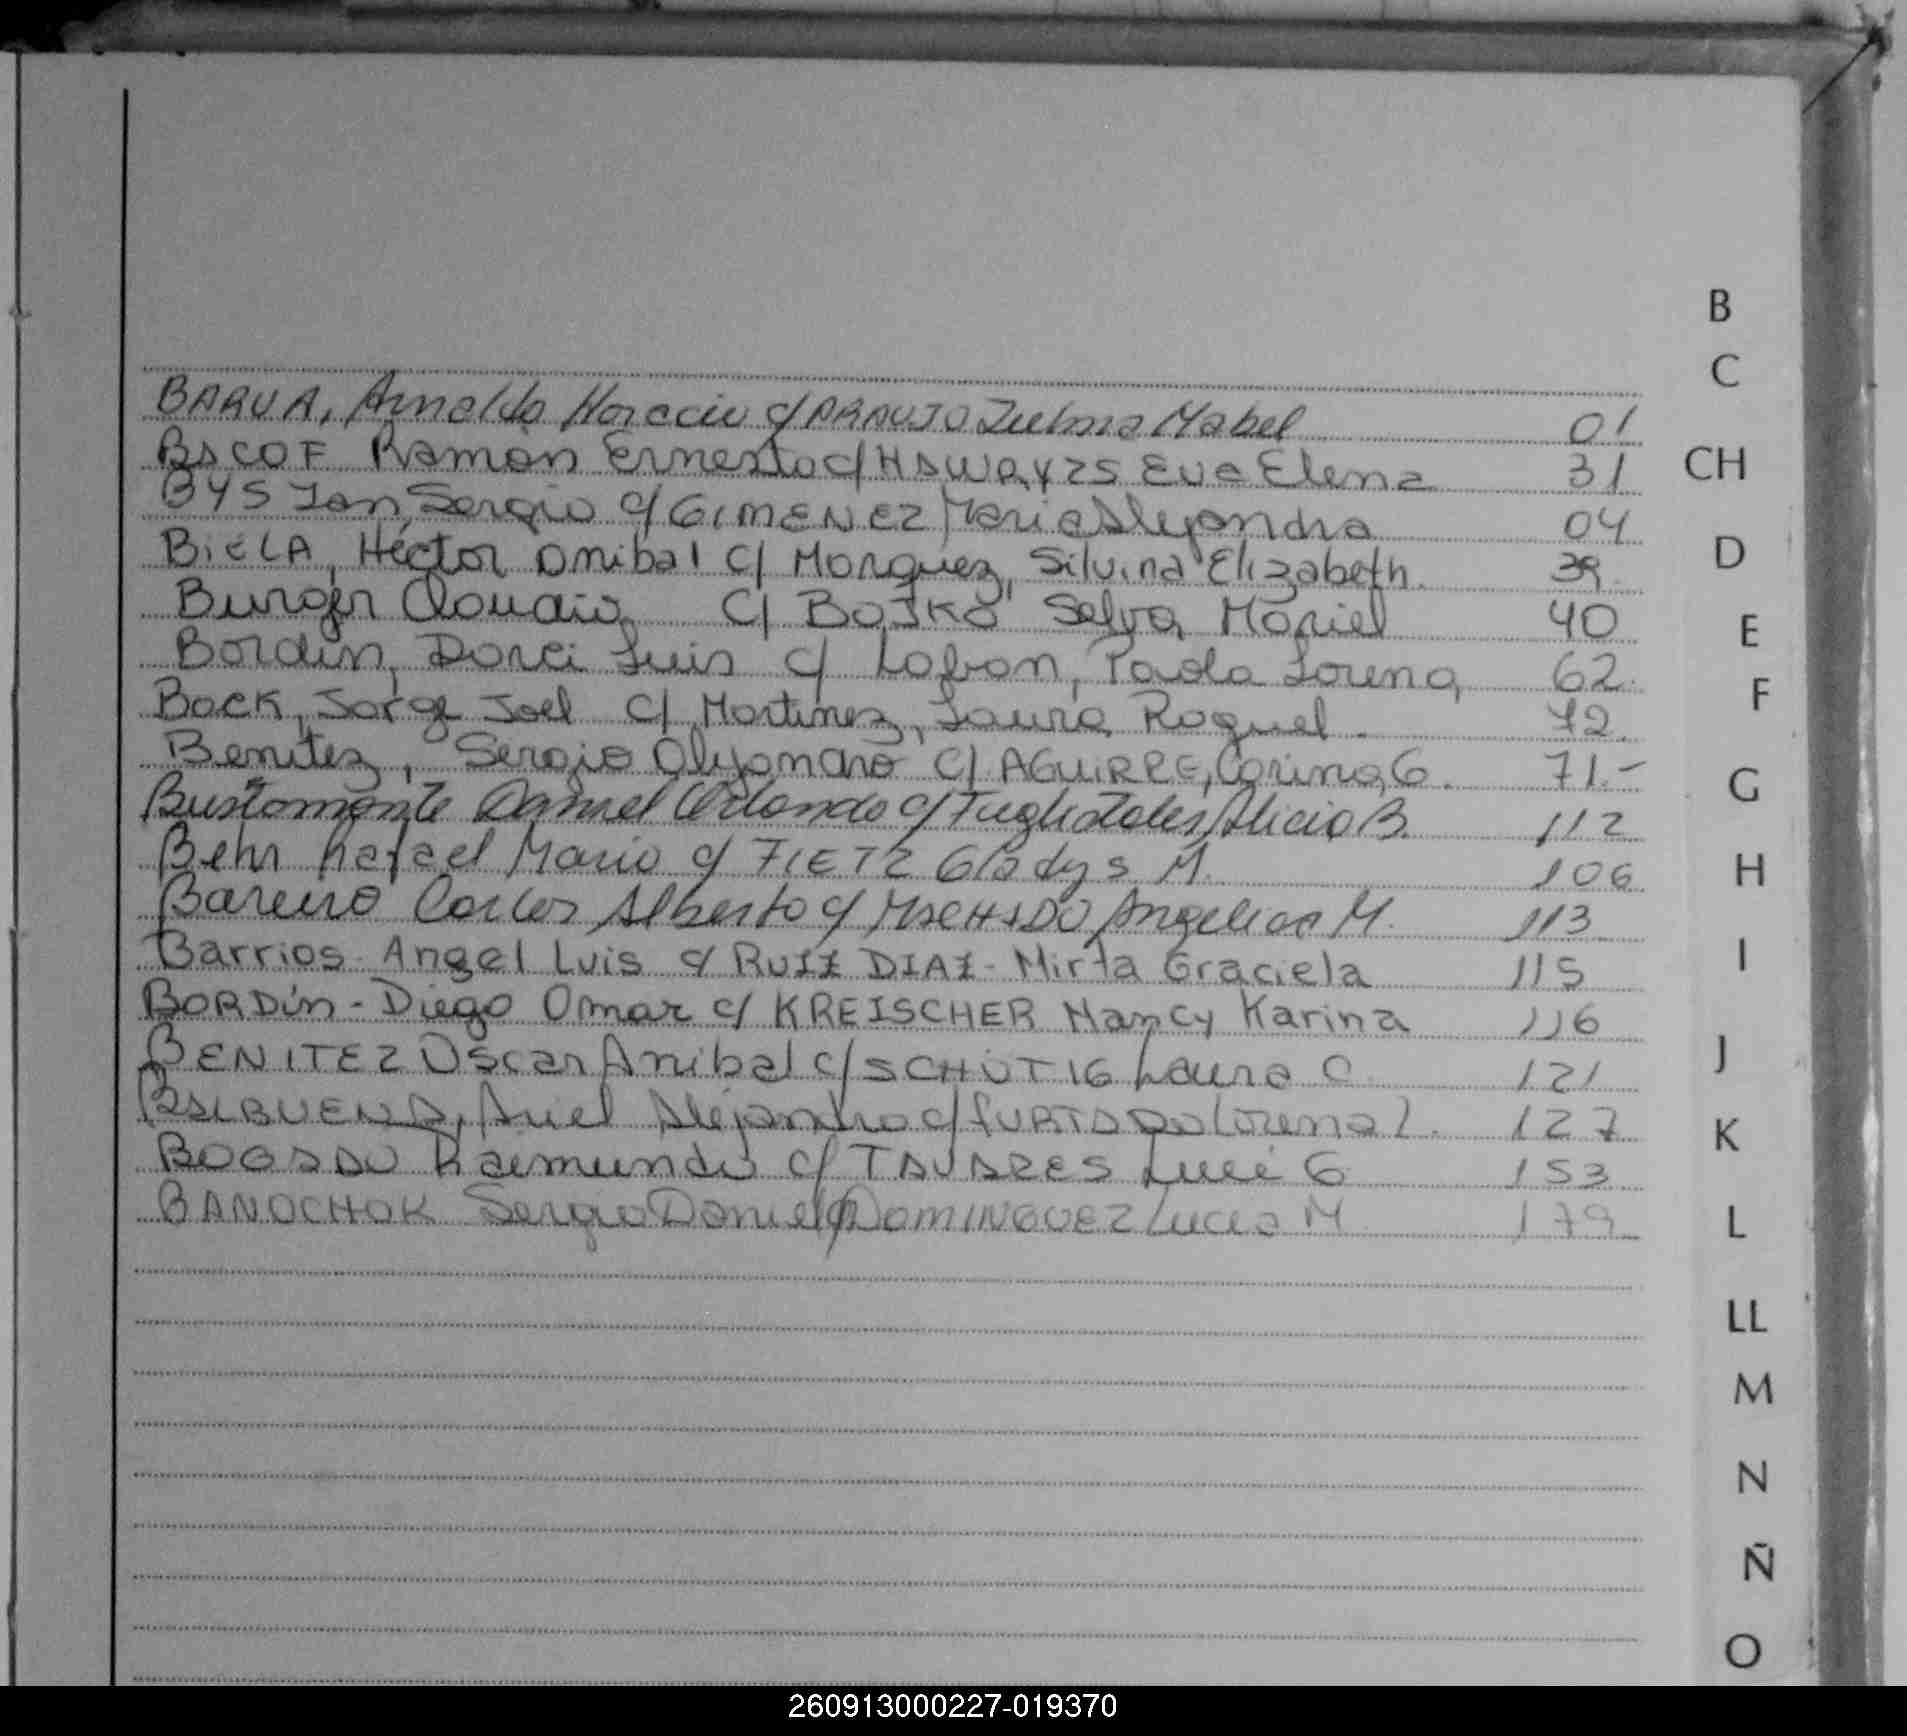 BARUA, Arnaldo Horacio c/ ARAUJO Zulma Mabel 01
BACOF Ramón Ernesto c/ Eva Elena 31
BYS Ian Sergio c/ GIMENEZ Maria Alejandra 04
BiELA, Héctor Anibal c/ Marquez, Silvina Elizabeth. 39
Burger Claudio C/ BOJKO Selva Mariel 40
Bordin, Darci Luis c/ Lobron, Paola Lorena 62
Bock, Jorge Joel c/ Martinez, Laura Raquel. 72
Benitez, Sergio Alejandro C/ AGUiRRE, Carina G. 71.-
Bustamante Daniel Orlando c/ Alicia B. 112
Behr Rafael Mario c/ FIETZ Gladys M. 106
Bareiro Carlos Alberto c/ MACHADO Angelica M. 113
Barrios - Angel Luis c/ RUIZ DIAZ - Mirta Graciela 115
BORDín - Diego Omar c/ KREISCHER Nancy Karina 116
BENITEZ Oscar Anibal c/ Laura C. 121
BALBUENA, Ariel Alejandro c/ FURTADO Lorena L. 127
BOGADO Raimundo c/ TAVARES Luci G. 153
BANOCHOK Sergio Daniel c/ DOMINGUEZ Lucia M. 179
B
C
CH
D
E
F
G
H
I
J
K
L
LL
M
N
Ñ
O
260913000227-019370